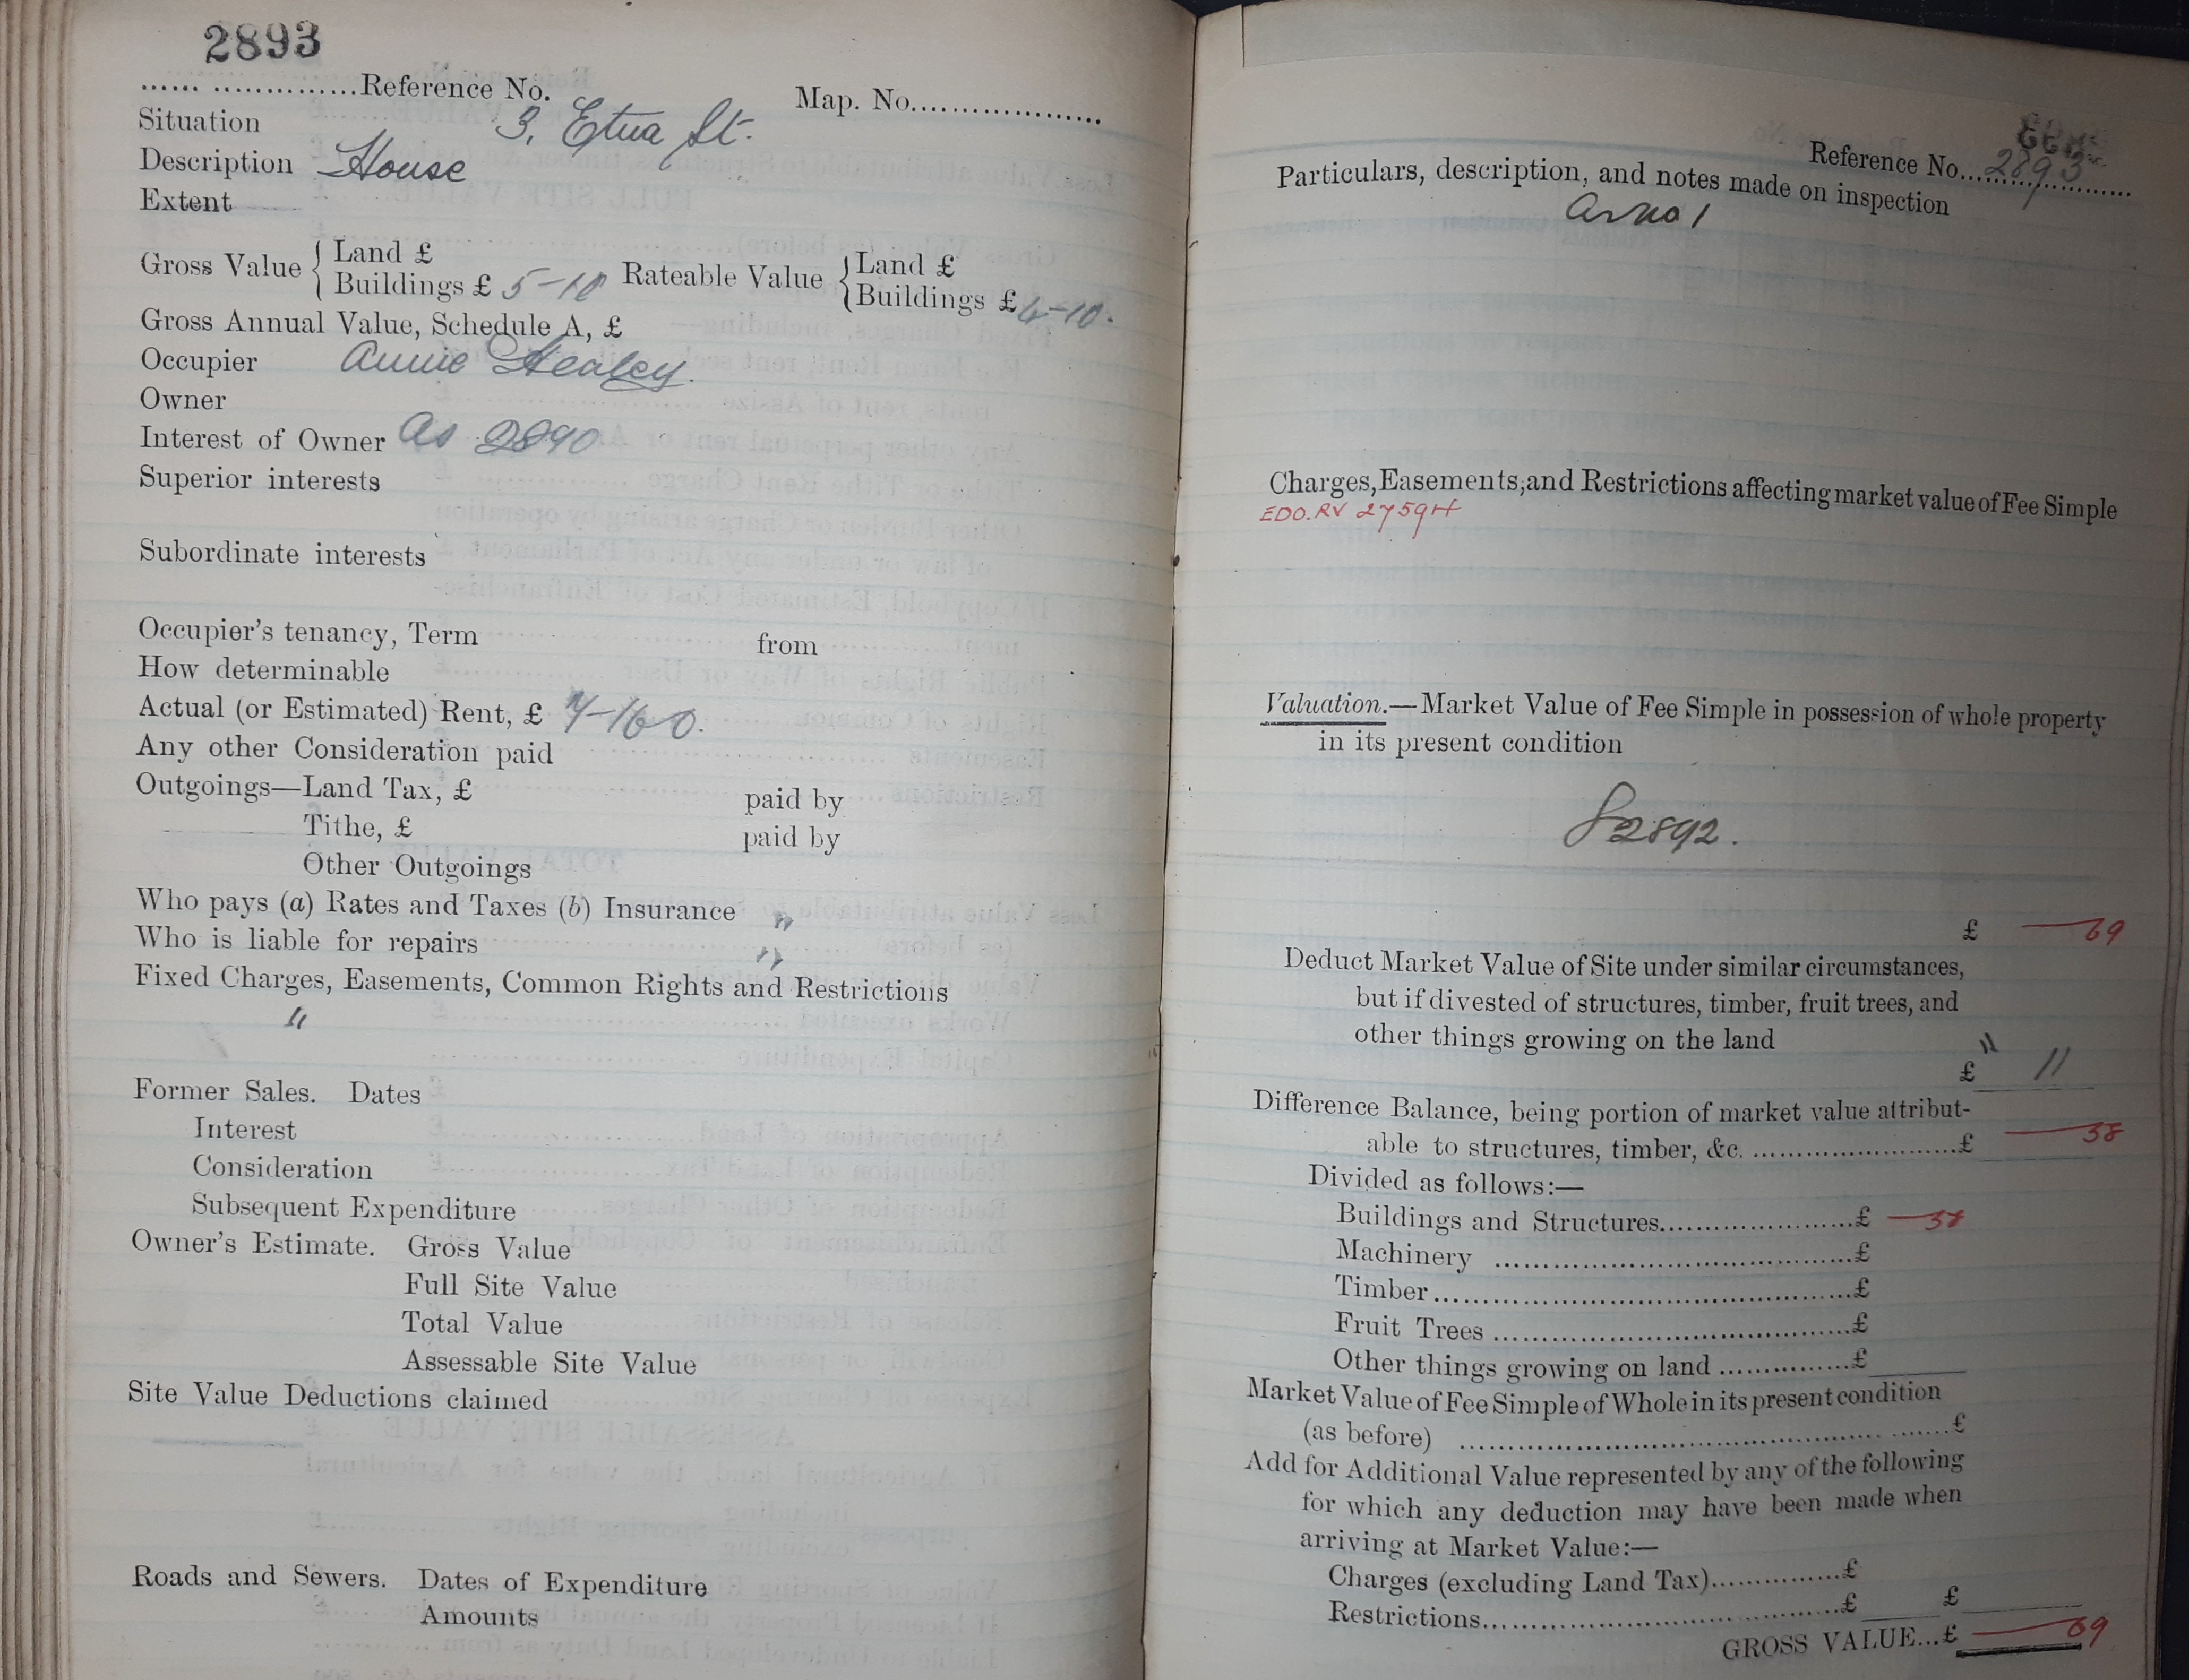 2893
Reference No. Map. No.
Situation 3, Etna St.
Description House
Extent
Gross Value { Land £
Buildings £ 5-10 Rateable Value { Land £
Buildings £ 4-10.
Gross Annual Value, Schedule A, £
Occupier Annie Healey.
Owner
Interest of Owner As 2890
Superior interests
Subordinate interests
Occupier's tenancy, Term from
How determinable
Actual (or Estimated) Rent, £ 7-16 0.
Any other Consideration paid
Outgoings—Land Tax, £ paid by
Tithe, £ paid by
Other Outgoings
Who pays (a) Rates and Taxes (b) Insurance "
Who is liable for repairs "
Fixed Charges, Easements, Common Rights and Restrictions
"
Former Sales. Dates
Interest
Consideration
Subsequent Expenditure
Owner's Estimate. Gross Value
Full Site Value
Total Value
Assessable Site Value
Site Value Deductions claimed
Roads and Sewers. Dates of Expenditure
Amounts
Reference No. 2893
Particulars, description, and notes made on inspection
As no 1
Charges, Easements, and Restrictions affecting market value of Fee Simple
EDO. RV 27594
Valuation.—Market Value of Fee Simple in possession of whole property
in its present condition
S 2892.
£ 69
Deduct Market Value of Site under similar circumstances,
but if divested of structures, timber, fruit trees, and
other things growing on the land "
£ 11
Difference Balance, being portion of market value attribut-
able to structures, timber, &c. £ 58
Divided as follows:—
Buildings and Structures £ 58
Machinery £
Timber £
Fruit Trees £
Other things growing on land £
Market Value of Fee Simple of Whole in its present condition
(as before) £
Add for Additional Value represented by any of the following
for which any deduction may have been made when
arriving at Market Value:—
Charges (excluding Land Tax) £
Restrictions £ £
GROSS VALUE...£ 69